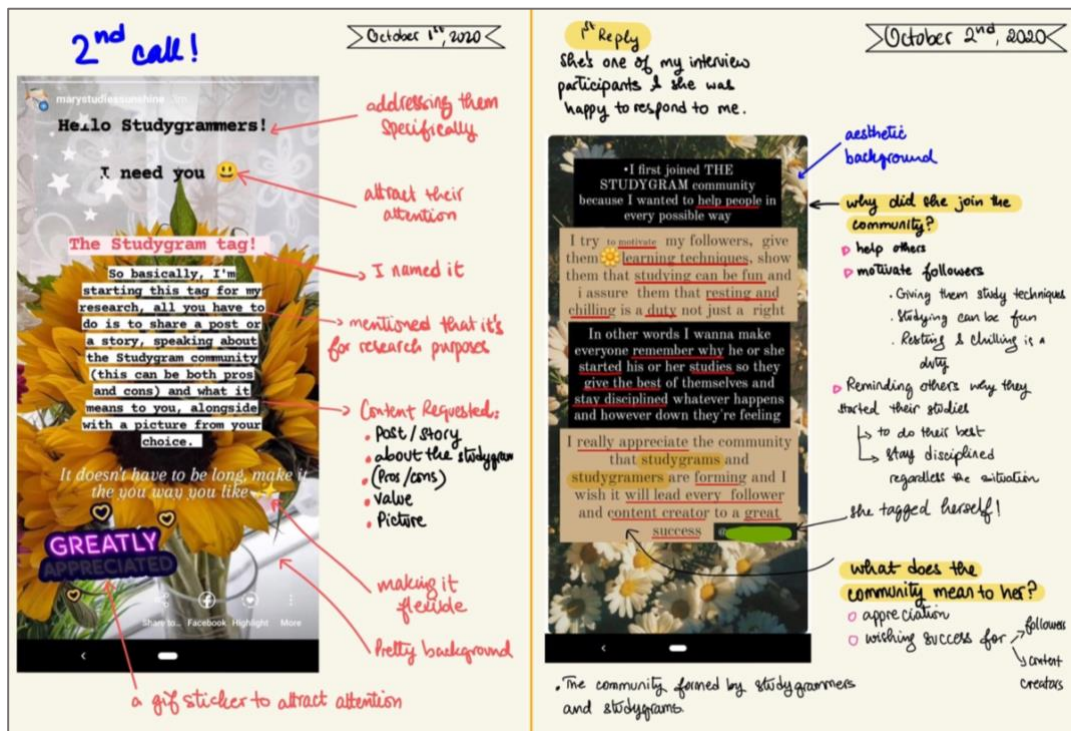 2nd call!
October 1st, 2020
marystudiessunshine
Hello Studygrammers!
I need you 😃
The Studygram tag!
So basically, I'm
starting this tag for my
research, all you have to
do is to share a post or
a story, speaking about
the Studygram community
(this can be both pros
and cons) and what it
means to you, alongside
with a picture from your
choice.
It doesn't have to be long, make it
the you way you like ✨
GREATLY
APPRECIATED
Share to... Facebook Highlight More
addressing them
specifically
attract their
attention
I named it
mentioned that it's
for research purposes
Content Requested:
• Post/story
• about the studygram
• (Pros/cons)
• value
• Picture
making it
flexible
Pretty background
a gif sticker to attract attention
October 2nd, 2020
1st Reply
She's one of my interview
participants & she was
happy to respond to me.
•I first joined THE
STUDYGRAM community
because I wanted to help people in
every possible way
I try to motivate my followers, give
them 🌼 learning techniques, show
them that studying can be fun and
i assure them that resting and
chilling is a duty not just a right
In other words I wanna make
everyone remember why he or she
started his or her studies so they
give the best of themselves and
stay disciplined whatever happens
and however down they're feeling
I really appreciate the community
that studygrams and
studygramers are forming and I
wish it will lead every follower
and content creator to a great
success
aesthetic
background
why did she join the
community?
help others
motivate followers
• Giving them study techniques
• Studying can be fun
• Resting & chilling is a
duty
Reminding others why they
started their studies
to do their best
stay disciplined
regardless the situation
she tagged herself!
what does the
community mean to her?
appreciation
wishing success for
followers
content
creators
• The community formed by studygrammers
and studygrams.